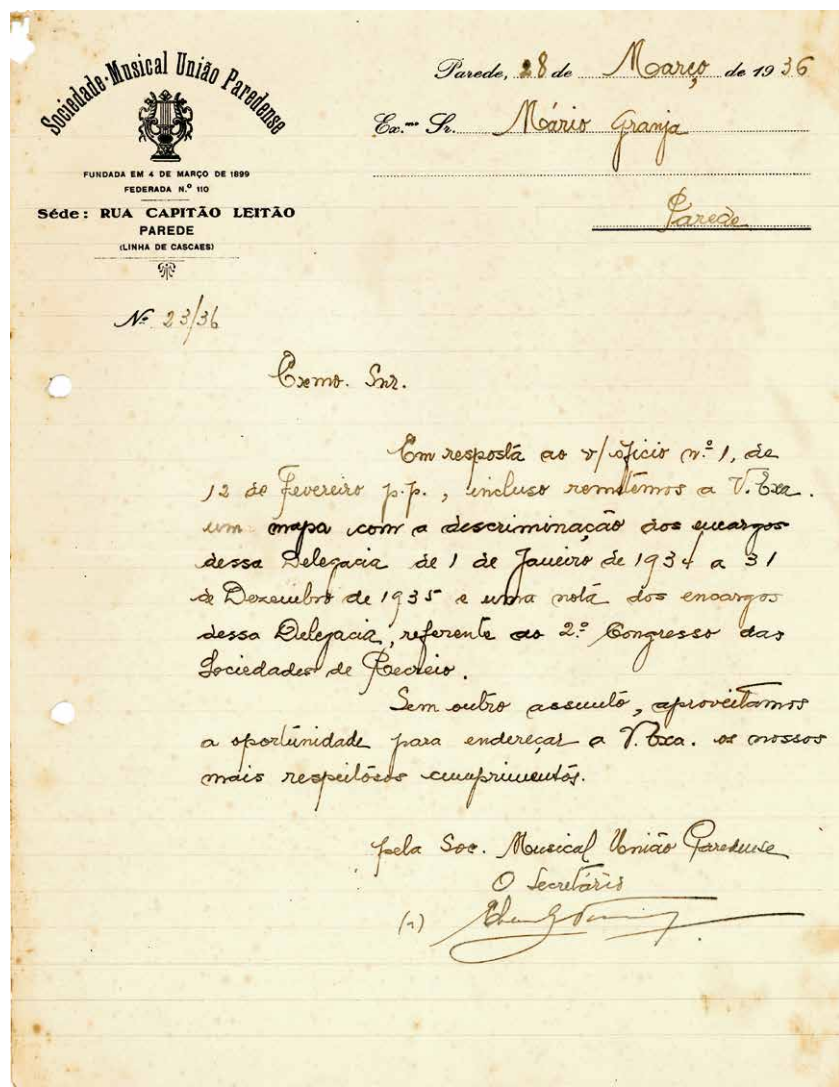 Sociedade-Musical União Paredense
FUNDADA EM 4 DE MARÇO DE 1899
FEDERADA N.º 110
Séde: RUA CAPITÃO LEITÃO
PAREDE
(LINHA DE CASCAES)
Parede, 28 de Março de 1936
Ex.mo Sr. Mário Granja
Parede
Nº 23/36
Exmo. Snr.
Em resposta ao v/ofício n.º 1, de
12 de Fevereiro p.p., incluso remetemos a V. Exa.
um mapa com a descriminação dos encargos
dessa Delegacia de 1 de Janeiro de 1934 a 31
de Dezembro de 1935 e uma nota dos encargos
dessa Delegacia, referente ao 2.º Congresso das
Sociedades de Recreio.
Sem outro assunto, aproveitamos
a oportunidade para endereçar a V. Exa. os nossos
mais respeitósos cumprimentos.
pela Soc. Musical União Paredense
O Secretário
(a)